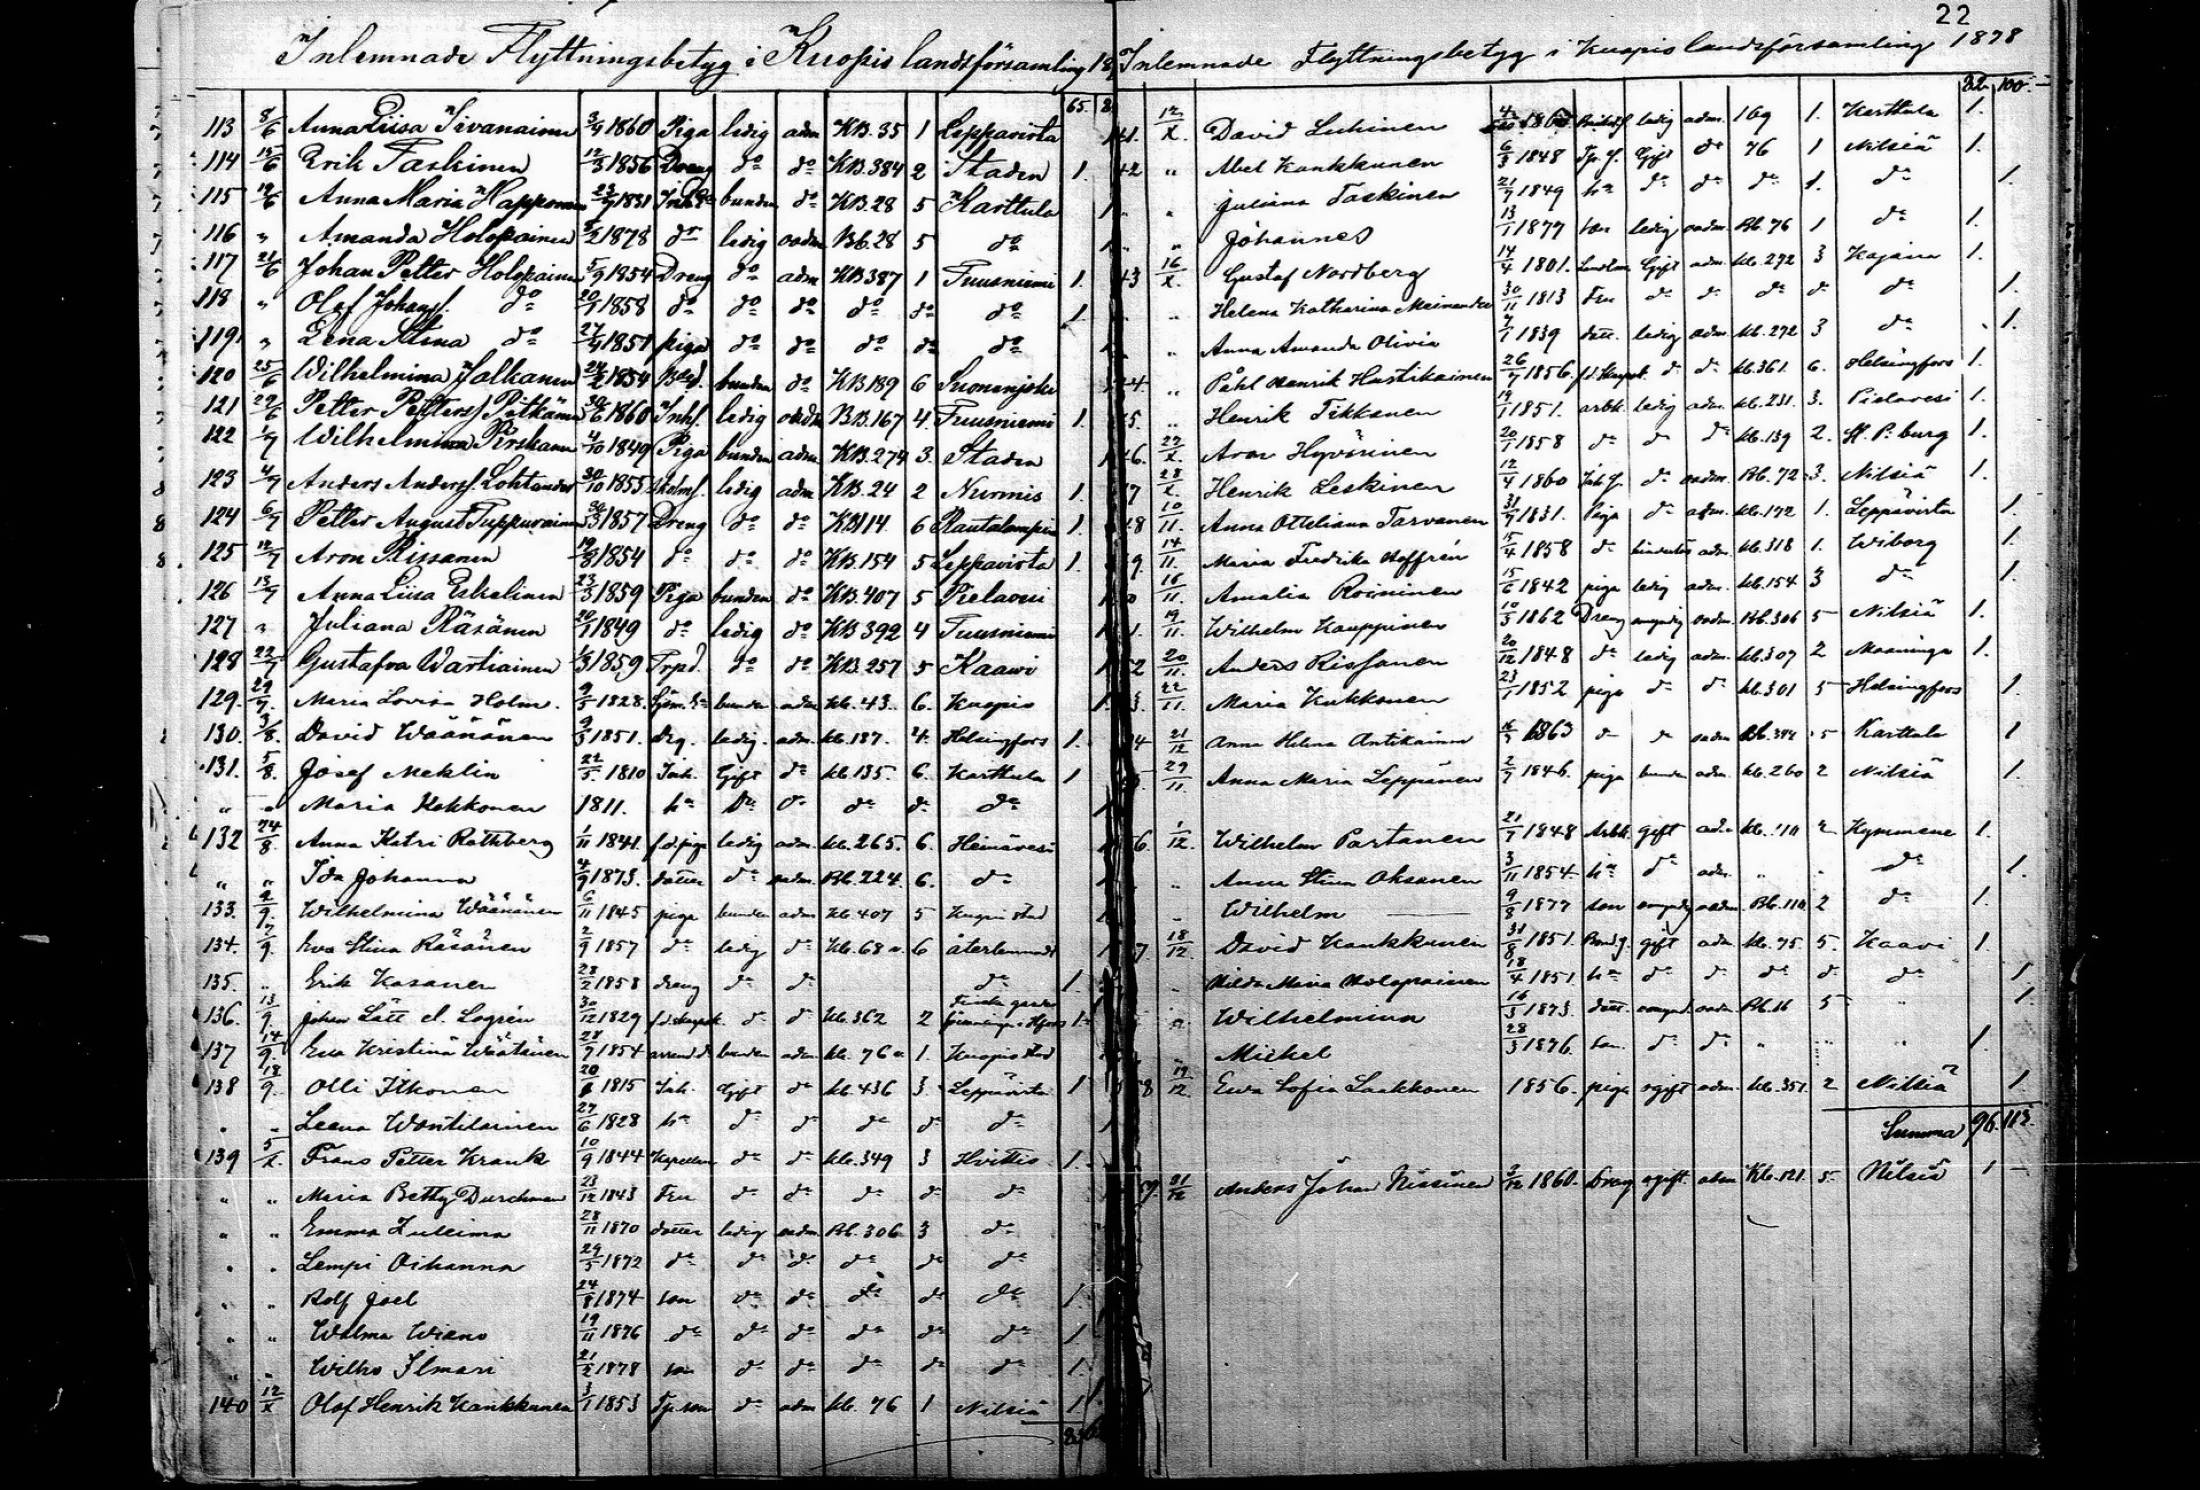 22
Inlemnade Flyttningsbetyg i Kuopio landsförsamling 18
65.
113 8/6 Anna Liisa 1860 Piga ledig adm KB.35 1 Leppävirta
114 Erik Taskinen 12/3 1856 Dreng do do KB.384 2 Staden 1.
115 Anna Maria Happonen 1831 bunden do KB.28 5 Karttula
116 " Amanda Holopainen 1878 dr ledig oadm Bb.28 5 do
117 21/6 Johan Petter Holopainen 5/9 1854 Dreng do adm KB387 1 Tuusniemi 1.
118 " Olof Johansf. do 1858 do do do do do do 1
119 " Lena Stina do 1851 piga do do do do do
120 25/6 Wilhelmina Jalkanen 24/2 1854 bunden do KB189 6 Suonenjoki
121 Petter Pettersf Pitkänen 1860 Inhf. ledig oadm BB.167 4. Tuusniemi 1.
122 1/7 Wilhelmina Pirskanen 1849 Piga bunden adm KB.274 3. Staden
123 4/7 Anders Andersf. Lohtander 30/10 1855 ledig adm KB.24 2 Nurmis 1.
124 6/7 Petter August Tuppurainen 1857 Dreng do do KB114. 6 Rautalampi 1.
125 12/7 Aron Rissanen 1854 do do do KB.154 5 Leppävirta 1.
126 13/7 Anna Liisa Eskelinen 23/3 1859 Piga bunden do KB.407 5 Pielavesi
127 " Juliana Räsänen 1849 do ledig do KB392 4 Tuusniemi
128 22/7 Gustafva Wartiainen 1859 Trpd. do do KB.257 5 Kaavi
129. 29/7. Maria Lovisa Holm. 9/5 1828. bunden adm kb.43. 6. Kuopio
130. 3/8. David Wäänänen 9/3 1851. drg. ledig. adm. kb.187. 4. Helsingfors 1.
131. 5/8. Josef Meklin 22/5. 1810 Inh. Gift do kb.135. 6. Karttula 1
" " Maria Kekkonen 1811. h:a do do do do do
132 24/8. Anna Katri Rothberg 1/11 1841. f.d.piga ledig adm. kb.265. 6. Heinävesi
" " Ida Johanna 4/9 1873. dotter do oadm. Bb.224. 6. do
133. 2/9. Wilhelmina Wäänänen 6/11 1845 piga bunden adm kb.407 5 Kuopio stad
134. 7/9. Eva Stina Räsänen 2/9 1857 do ledig do kb.68 6 återlemnadt
135. " Erik Kasanen 28/2 1858 dreng do do do 1.
136. 13/9. Johan Lätt el. Logrén 30/12 1829 do do kb.362 2 1.
137 14/9. Eva Kristina Wäätäinen 28/9 1854 bunden adm kb. 76 1. Kuopio stad
138 18/9. Olli Itkonen 1815 Inh. Gift do kb.436 3. Leppävirta 1
" " Leena Wontilainen 27/6 1828 h:a do do do do do
139 5/X. Frans Petter Krank 10/9 1844 Kapellan do do kb.349 3 Hvittis 1.
" " Maria Betty Durchman 23/12 1843 Fru do do do do do
" " Emma Zuleima 28/11 1870 dotter ledig oadm. Bb.306 3 do
" " Lempi Oihanna 29/5 1872 do do do do do do
" " Rolf Joel 24/8 1874 son do do do do do 1
" " Walma Wieno 19/11 1876 do do do do do do 1
" " Wilho Ilmari 21/2 1878 son do do do do do 1.
140 12/X Olof Henrik Kankkunen 3/1 1853 Tp.son do adm kb. 76 1 Nilsiä 1
Inlemnade Flyttningsbetyg i Kuopio landsförsamling 1878
82. 100.
41. 12/X. David Luhinen ledig adm. 169 1. Karttula 1.
42 " Abel Kankkunen 6/3 1848 Tp.f. Gift do 76 1 Nilsiä 1.
" " Juliana Taskinen 21/7 1849 h:a do do do 1. do 1.
" " Johannes 13/1 1877 son ledig oadm. Bb.76 1 do 1.
43 16/X. Gustaf Nordberg 14/4 1801. Gift adm. kb.272 3 Kajana 1.
" " Helena Katharina Meinander 30/11 1813 Fru do do do do do 1.
" " Anna Amanda Olivia 1839 dott. ledig adm. kb.272 3 do 1.
44. " Påhl Henrik Hastikainen 26/7 1856. do do kb.361. 6. Helsingfors 1.
45. " Henrik Tikkanen 19/1 1851. arbk. ledig adm. kb.231. 3. Pielavesi 1.
46. 22/X. Aron Hyvärinen 20/1 1858 do do do kb.139 2. St. P:burg 1.
47 28/X. Henrik Leskinen 12/4 1860 Inh.f. do oadm. Bb.72 3. Nilsiä 1.
48 10/11. Anna Otteliana Tarvanen 31/7 1831. Piga do adm. kb.172 1. Leppävirta 1.
49. 14/11. Maria Fredrika Hoffrén 15/4 1858 do adm. kb.318 1. Wiborg 1.
50 16/11. Amalia Roininen 15/6 1842 piga ledig adm. kb.154 3 do 1.
51. 19/11. Wilhelm Kauppinen 10/5 1862 Dreng oadm. Bb.306 5 Nilsiä 1.
52 20/11. Anders Rissanen 20/12 1848 do ledig adm. kb.307 2 Maaninga 1.
53. 22/11. Maria Kukkonen 23/1 1852 piga do do kb.301 5 Helsingfors 1.
54 21/12 Anna Helena Antikainen 1863 do do oadm Bb.344 5 Karttula 1
55. 29/11. Anna Maria Leppänen 2/7 1846. piga bunden adm. kb.260 2 Nilsiä 1.
56. 1/12. Wilhelm Partanen 21/7 1848 Arbk. gift adm kb.110 2 Kymmene 1.
" Anna Stina Oksanen 3/11 1854 h:a do adm. " " do 1.
" Wilhelm 9/8 1877 son omyndig oadm. Bb.110 2 do 1.
57. 18/12. David Kankkunen 31/8 1851. gift adm kb.75. 5. Kaavi 1.
" Hilda Maria Holopainen 18/4 1851. h:a do do do do do 1
" Wilhelmina 16/3 1873. dott. omynd. oadm Bb.16 5 " 1.
" Michel 28/3 1876. son. do do " " " 1.
58 19/12. Ewa Sofia Laakkonen 1856. piga ogift adm. kb.351. 2 Nilsiä 1
Summa 96. 113.
59. 21/12 Anders Johan Nissinen 2/12 1860. Dreng ogift. adm Kb.121. 5. Nilsiä 1 —